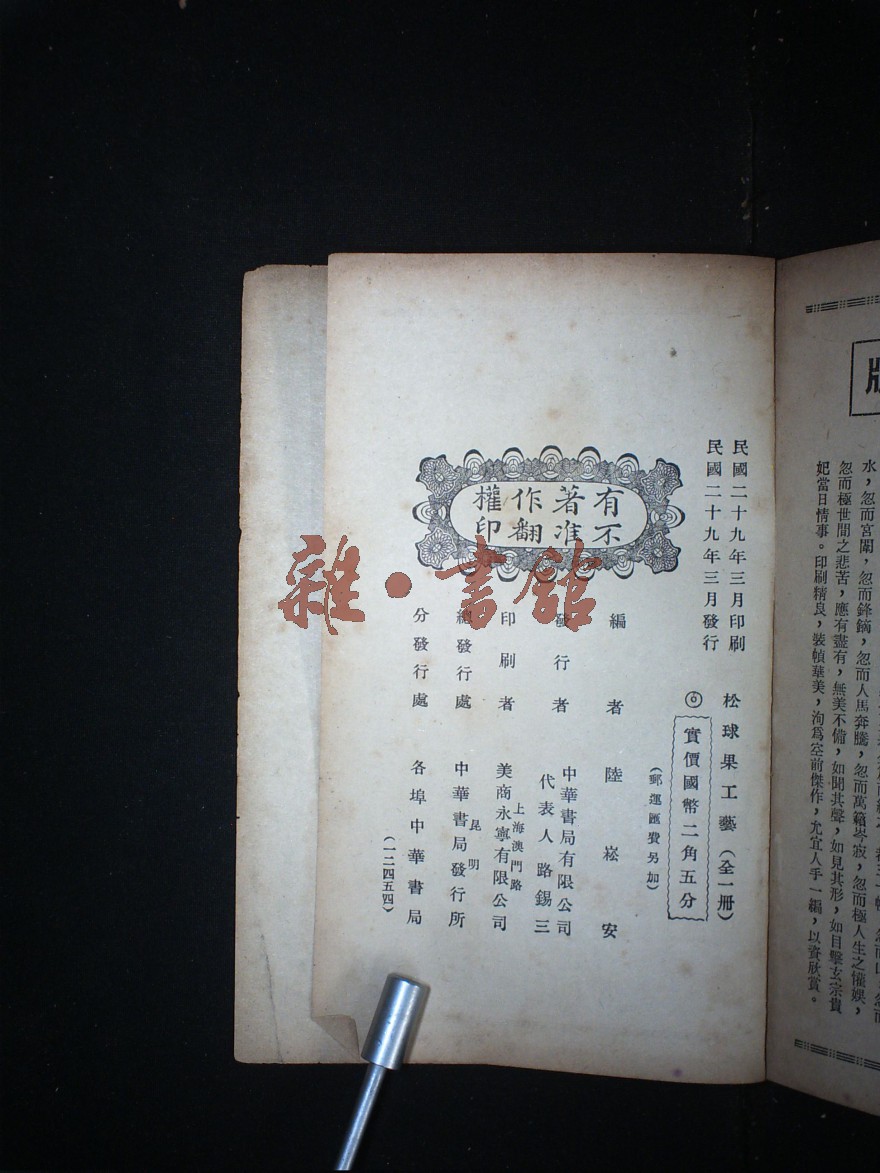 民國二十九年三月印刷
民國二十九年三月發行
有著作權
不准翻印
松球果工藝（全一冊）
◎實價國幣二角五分
（郵運匯費另加）
編者 陸崧安
發行者 中華書局有限公司
代表人路錫三
印刷者 上海澳門路
美商永寧有限公司
總發行處 昆明
中華書局發行所
分發行處 各埠中華書局
（一二四五四）
雜·書館
水，忽而宮闈，忽而鋒鏑，忽而人馬奔騰，忽而萬籟岑寂，忽而極人生之懽娛，
忽而極世間之悲苦，應有盡有，無美不備，如聞其聲，如見其形，如目擊玄宗貴
妃當日情事。印刷精良，裝幀華美，洵爲空前傑作，尤宜人手一編，以資欣賞。